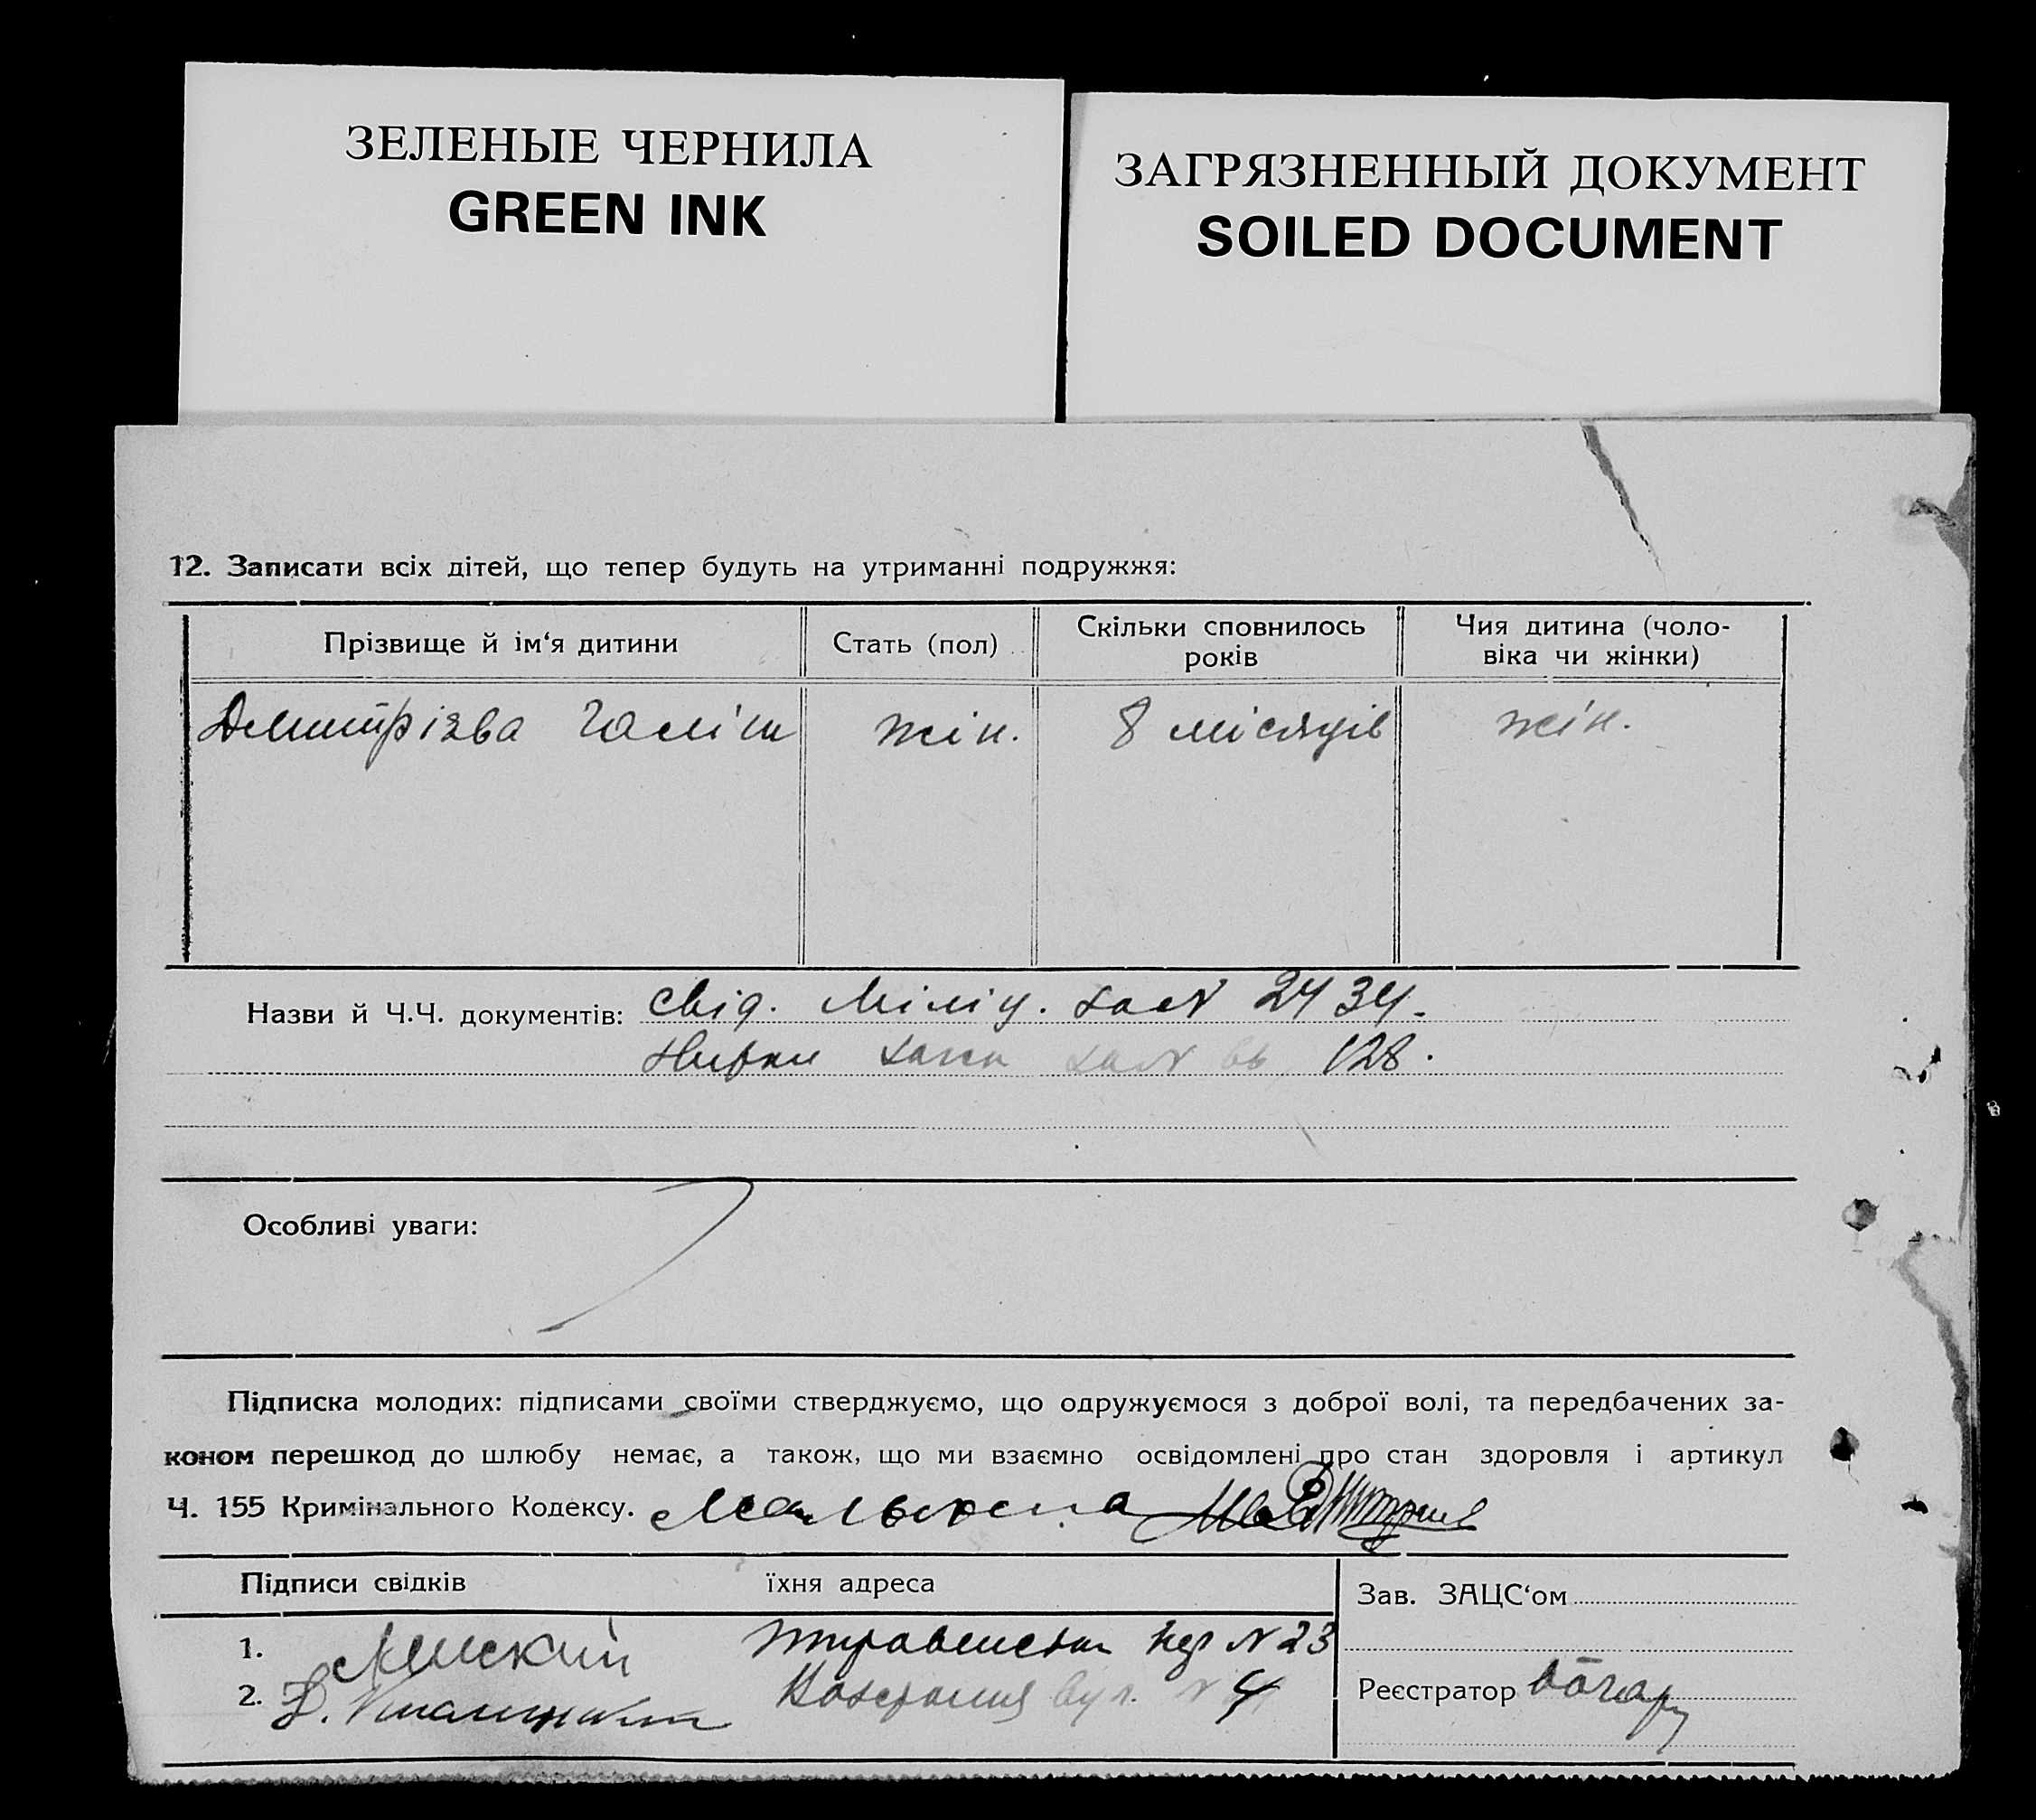 ЗЕЛЕНЫЕ ЧЕРНИЛА
GREEN INK
ЗАГРЯЗНЕННЫЙ ДОКУМЕНТ
SOILED DOCUMENT
12. Записати всіх дітей, що тепер будуть на утриманні подружжя:
Прізвище й ім‘я дитини
Стать (пол)
Скільки сповнилось
років
Чия дитина (чоло-
віка чи жінки)
жін.
8 місяців
жін.
Назви й Ч.Ч. документів: свід. Міліц. 2434.
128.
Особливі уваги:
Підписка молодих: підписами своїми стверджуємо, що одружуємося з доброї волі, та передбачених за-
коном перешкод до шлюбу немає, а також, що ми взаємно освідомлені про стан здоровля і артикул
Ч. 155 Кримінального Кодексу.
Підписи свідків їхня адреса
Зав. ЗАЦС‘ом
1. N 23
2. вул. N 4
Реєстратор